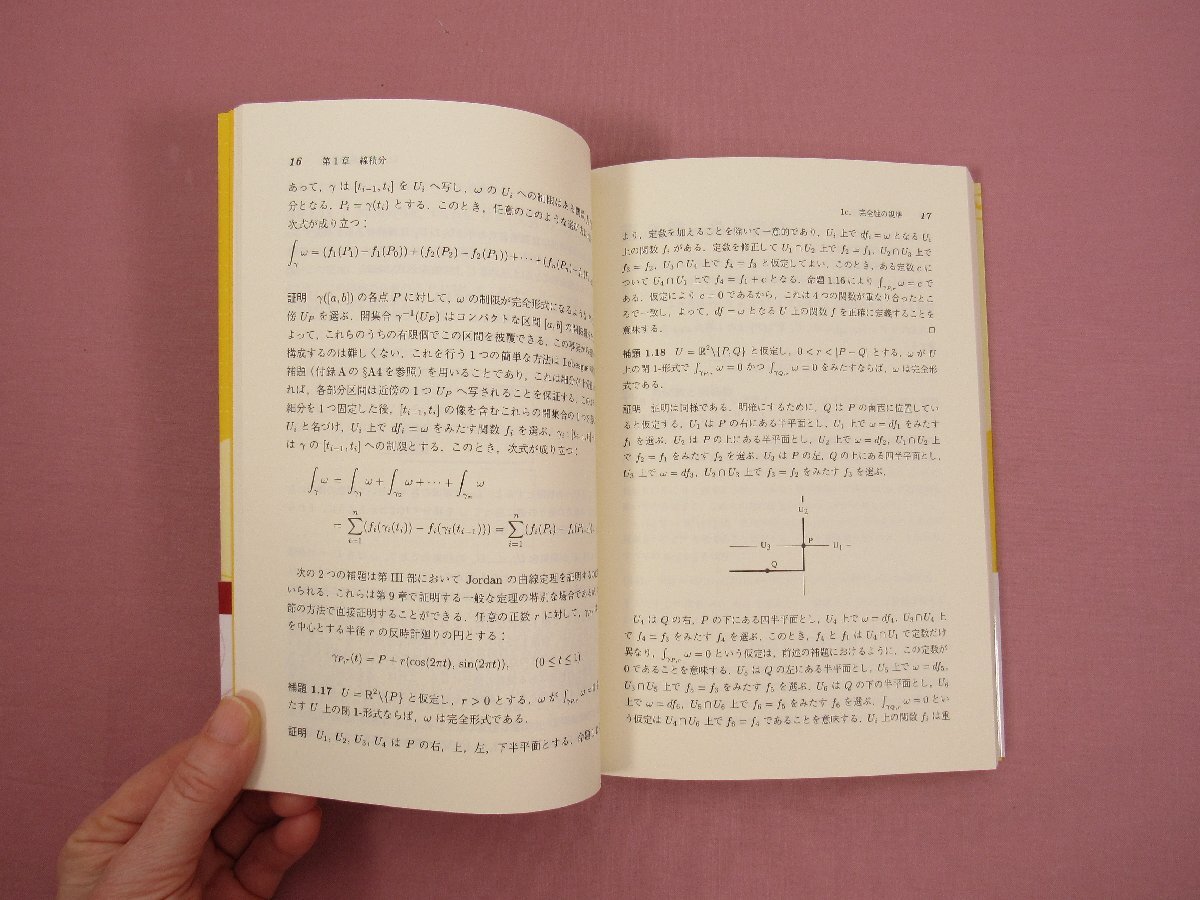 16 第1章 線積分
あって，γ は [t_{i−1}, t_i] を U_i へ写し，ω の U_i への制限はある
分となる．P_i = γ(t_i) とする．このとき，任意のこのような
次式が成り立つ：
∫_γ ω = (f_1(P_1) − f_1(P_0)) + (f_2(P_2) − f_2(P_1)) + ⋯ + (f_n(P_n) −
証明 γ([a, b]) の各点 P に対して，ω の制限が完全形式になるような
傍 U_P を選ぶ．開集合 γ^{−1}(U_P) はコンパクトな区間 [a, b] の
よって，これらのうちの有限個でこの区間を被覆できる．この事実から
構成するのは難しくない．これを行う1つの簡単な方法は Lebesgue
補題（付録Aの §A4 を参照）を用いることであり，これは
れば，各部分区間は近傍の1つ U_P へ写されることを保証する．
細分を1つ固定した後，[t_{i−1}, t_i] の像を含むこれらの開集合の1つを
U_i と名づけ，U_i 上で df_i = ω をみたす関数 f_i を選ぶ．γ_i : [t_{i−1}, t_i]
は γ の [t_{i−1}, t_i] への制限とする．このとき，次式が成り立つ：
∫_γ ω = ∫_{γ_1} ω + ∫_{γ_2} ω + ⋯ + ∫_{γ_n} ω
= ∑_{i=1}^{n} (f_i(γ_i(t_i)) − f_i(γ_i(t_{i−1}))) = ∑_{i=1}^{n} (f_i(P_i) − f_i(P_{i−1})).
次の2つの補題は第 III 部において Jordan の曲線定理を証明する
いられる．これらは第9章で証明する一般な定理の特別な場合であるが，
節の方法で直接証明することができる．任意の正数 r に対して，γ_{P,r}
を中心とする半径 r の反時計廻りの円とする：
γ_{P,r}(t) = P + r(cos(2πt), sin(2πt)), (0 ≤ t ≤ 1)
補題 1.17 U = ℝ²\{P} と仮定し，r > 0 とする．ω が ∫_{γ_{P,r}} ω = 0
たす U 上の閉 1-形式ならば，ω は完全形式である．
証明 U_1, U_2, U_3, U_4 は P の右，上，左，下半平面とする．命題
1c. 完全性の規準 17
より，定数を加えることを除いて一意的であり，U_i 上で df_i = ω となる U_i
上の関数 f_i がある．定数を修正して U_1 ∩ U_2 上で f_2 = f_1，U_2 ∩ U_3 上で
f_3 = f_2，U_3 ∩ U_4 上で f_4 = f_3 と仮定してよい．このとき，ある定数 c に
ついて U_4 ∩ U_1 上で f_4 = f_1 + c となる．命題 1.16 により ∫_{γ_{P,r}} ω = c で
ある．仮定により c = 0 であるから，これは4つの関数が重なり合ったとこ
ろで一致し，よって，df = ω となる U 上の関数 f を正確に定義することを
意味する． □
補題 1.18 U = ℝ²\{P, Q} と仮定し，0 < r < |P − Q| とする．ω が U
上の閉 1-形式で ∫_{γ_{P,r}} ω = 0 かつ ∫_{γ_{Q,r}} ω = 0 をみたすならば，ω は完全形
式である．
証明 証明は同様である．明確にするために，Q は P の南西に位置してい
ると仮定する．U_1 は P の右にある半平面とし，U_1 上で ω = df_1 をみたす
f_1 を選ぶ．U_2 は P の上にある半平面とし，U_2 上で ω = df_2，U_1 ∩ U_2 上
で f_2 = f_1 をみたす f_2 を選ぶ．U_3 は P の左，Q の上にある四半平面とし，
U_3 上で ω = df_3，U_2 ∩ U_3 上で f_3 = f_2 をみたす f_3 を選ぶ．
U_2
U_3 P U_1
Q
U_4 は Q の右，P の下にある四半平面とし，U_4 上で ω = df_4，U_3 ∩ U_4 上
で f_4 = f_3 をみたす f_4 を選ぶ．このとき，f_4 と f_1 は U_4 ∩ U_1 で定数だけ
異なり，∫_{γ_{P,r}} ω = 0 という仮定は，前述の補題におけるように，この定数が
0 であることを意味する．U_5 は Q の左にある半平面とし，U_5 上で ω = df_5，
U_3 ∩ U_5 上で f_5 = f_3 をみたす f_5 を選ぶ．U_6 は Q の下の半平面とし，U_6
上で ω = df_6，U_5 ∩ U_6 上で f_6 = f_5 をみたす f_6 を選ぶ．∫_{γ_{Q,r}} ω = 0 とい
う仮定は U_4 ∩ U_6 上で f_6 = f_4 であることを意味する．U_i 上の関数 f_i は重